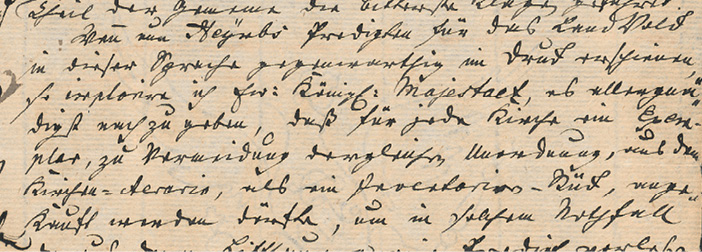 Theil der Gemeine die bitterste Klage geführet.
Wenn nun Heyns Predigten für das Land Volck
in dieser Sprache gegenwärthig im Druck erschienen,
so imploriere ich Ew: Königl: Majestaet, es allergnä
digst nachzugeben, daß für jede Kirche ein Exem-
plar, zu Vermeidung dergleichen Unordnung, aus dem
Kirchen-Aerario, als ein Inventarien-Stück, ange
kauft werden dürfte, um in solchem Nothfall